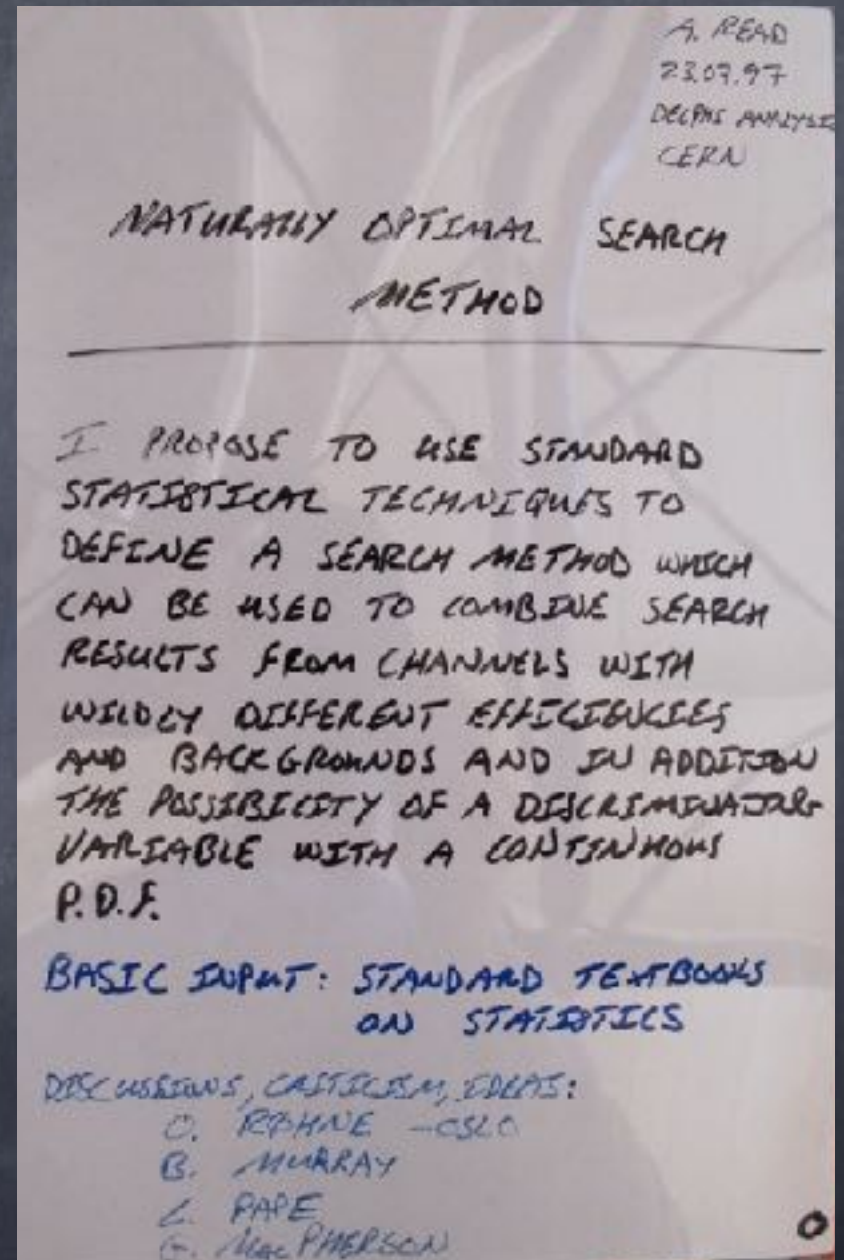 A. READ
23.07.97
DELPHI ANALYSIS
CERN
NATURALLY OPTIMAL SEARCH
METHOD
I PROPOSE TO USE STANDARD
STATISTICAL TECHNIQUES TO
DEFINE A SEARCH METHOD WHICH
CAN BE USED TO COMBINE SEARCH
RESULTS FROM CHANNELS WITH
WILDLY DIFFERENT EFFICIENCIES
AND BACKGROUNDS AND IN ADDITION
THE POSSIBILITY OF A DISCRIMINATING
VARIABLE WITH A CONTINUOUS
P.D.F.
BASIC INPUT: STANDARD TEXTBOOKS
ON STATISTICS
DISCUSSIONS, CRITICISM, IDEAS:
O. RØHNE - OSLO
B. MURRAY
L. PAPE
G. MacPHERSON
0